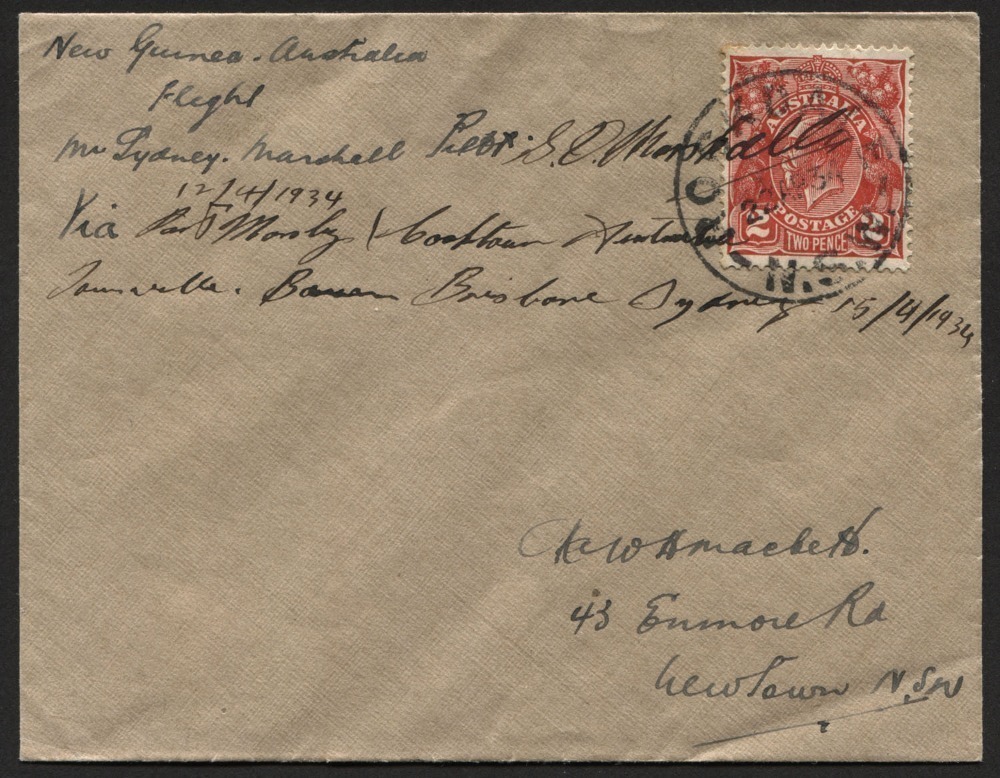 New Guinea. Australia
Flight
Mr Sydney. Marshall Pilot. S. D. Marshall
12/4/1934
Via Port Moresby Cooktown
Townsville. Bowen Brisbane Sydney 15/4/1934
AUSTRALIA
2 POSTAGE 2
TWO PENCE
43 Enmore Rd
Newtown N.S.W